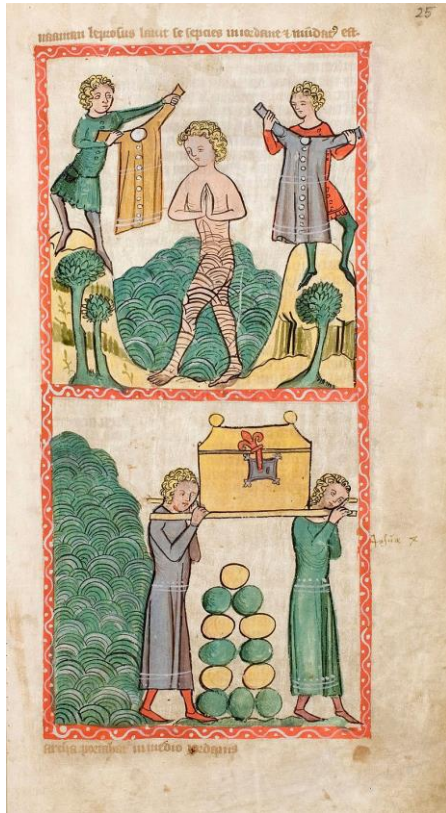 25
naaman leprosus lauit se sepcies in iordane ⁊ mũdatꝰ est.
Josue
archa portatur in medio iordanis